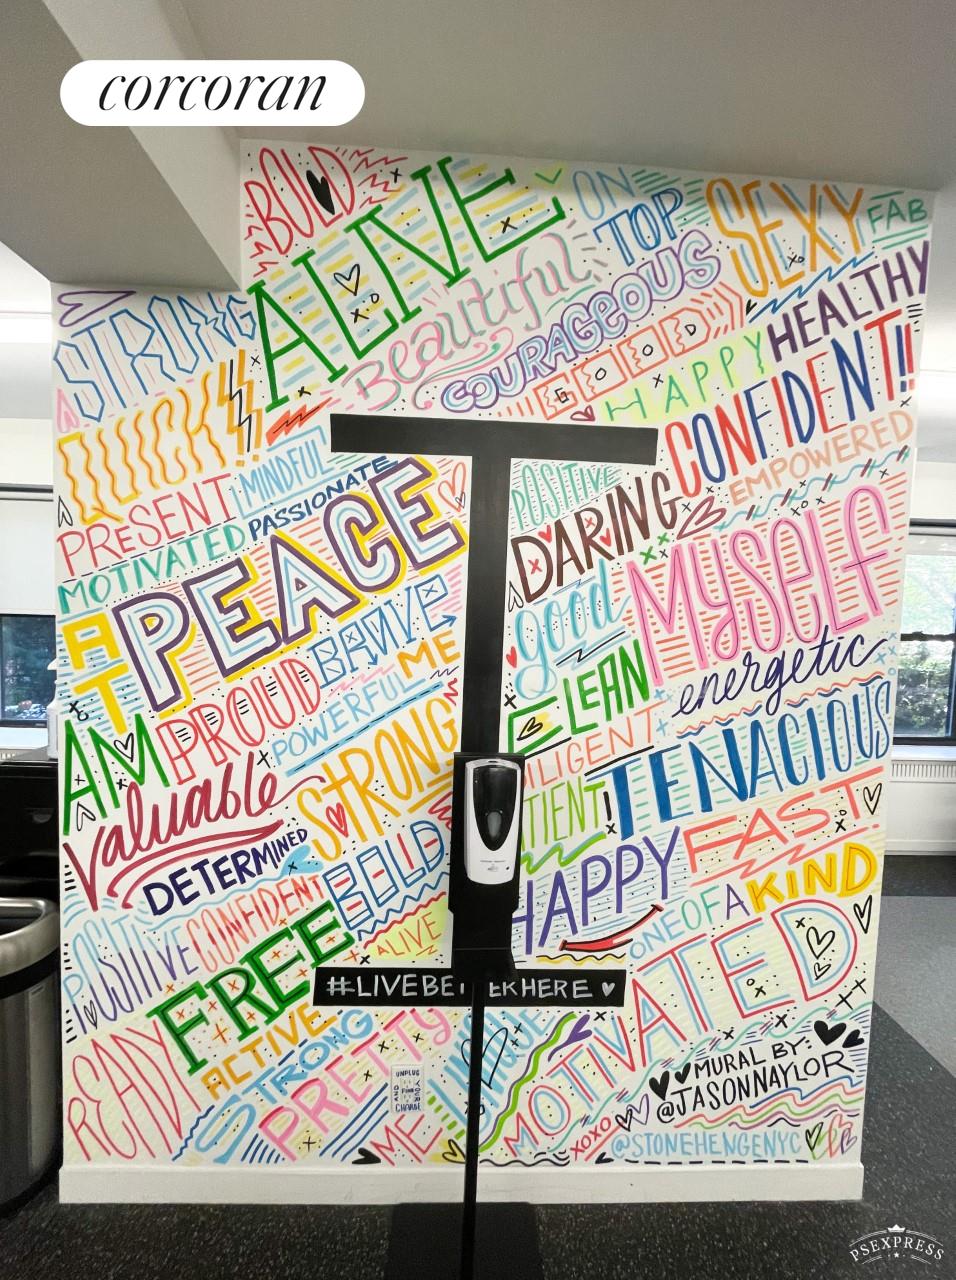 corcoran
BOLD
ALIVE
ON
TOP
SEXY
FAB
STRONG
Beautiful
COURAGEOUS
GOOD
HAPPY
HEALTHY
QUICK!!
CONFIDENT!!
PRESENT
MINDFUL
POSITIVE
EMPOWERED
MOTIVATED
PASSIONATE
DARING
AT
PEACE
good
MYSELF
BRAVE
PROUD
ME
CLEAN
energetic
AM
POWERFUL
ILIGENT
TENACIOUS
Valuable
STRONG
TIENT
FAST
DETERMINED
BOLD
HAPPY
ONE OF A KIND
POSITIVE
CONFIDENT
ALIVE
FREE
#LIVEBETTERHERE
MOTIVATED
READY
ACTIVE
STRONG
PRETTY
UNPLUG
AND
FIND
YOUR
CHARGE
ME
MURAL BY:
@JASONNAYLOR
XOXO
@STONEHENGENYC
PSEXPRESS